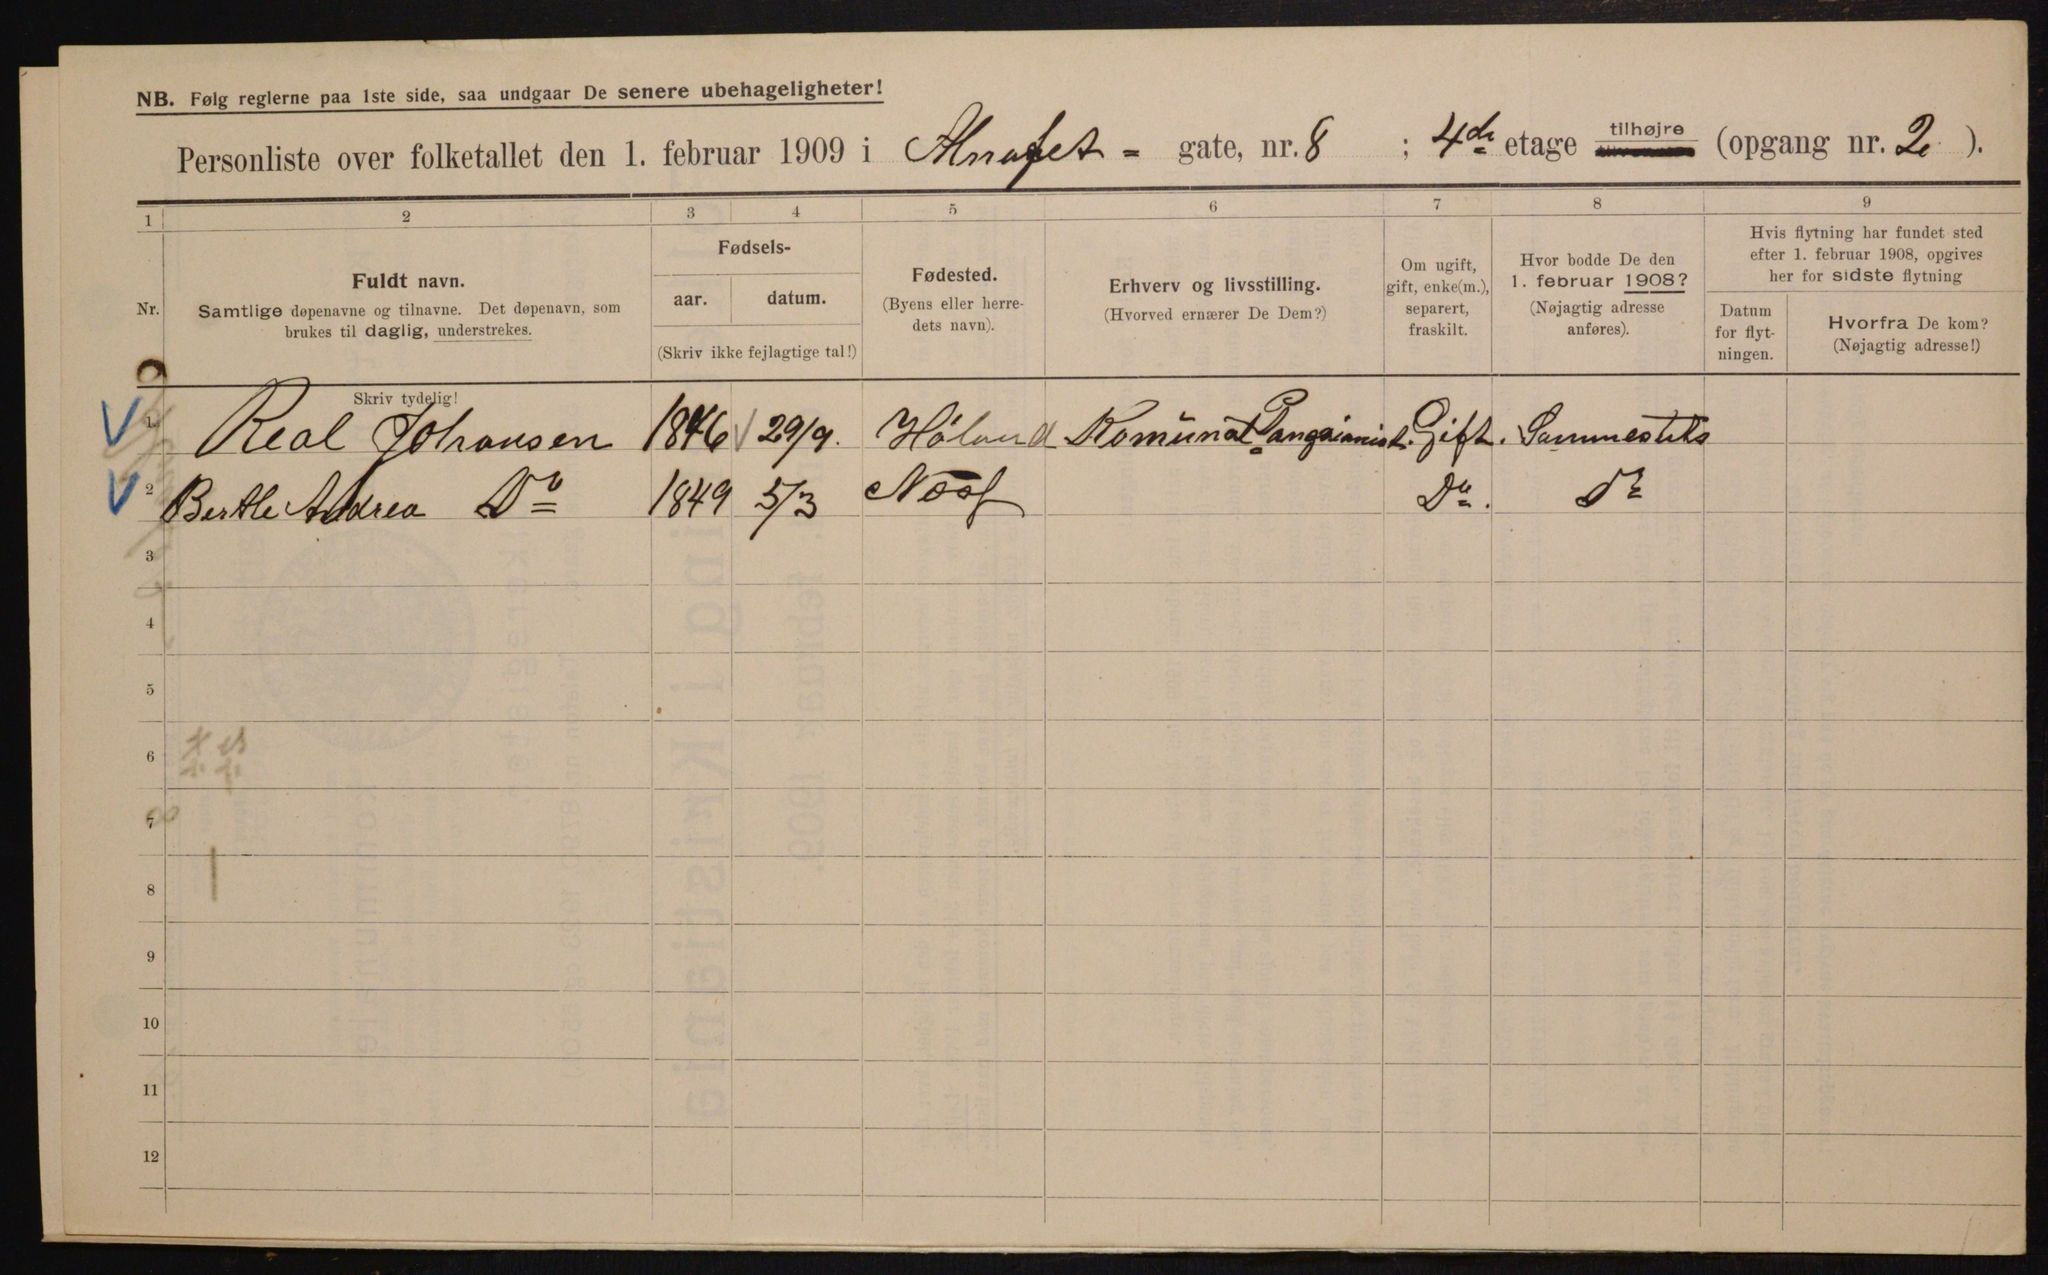 NB. Følg reglerne paa 1ste side, saa undgaar De senere ubehageligheter!
Personliste over folketallet den 1. februar 1909 i gate, nr. 8 ; 4de etage tilhøjre (opgang nr. 2 ).
1 2 3 4 5 6 7 8 9
Nr.
Fuldt navn.
Samtlige døpenavne og tilnavne. Det døpenavn, som
brukes til daglig, understrekes.
Fødsels-
aar. datum.
(Skriv ikke fejlagtige tal!)
Fødested.
(Byens eller herre-
dets navn).
Erhverv og livsstilling.
(Hvorved ernærer De Dem?)
Om ugift,
gift, enke(m.),
separert,
fraskilt.
Hvor bodde De den
1. februar 1908?
(Nøjagtig adresse
anføres).
Hvis flytning har fundet sted
efter 1. februar 1908, opgives
her for sidste flytning
Datum
for flyt-
ningen.
Hvorfra De kom?
(Nøjagtig adresse!)
Skriv tydelig!
1 Real Johansen 1846 29/9. Høland Komunal Pangsionist. Gift. Sammesteds
2 Berthe Andrea Do 1849 5/3 Do. Do
3
4
5
6
7
8
9
10
11
12